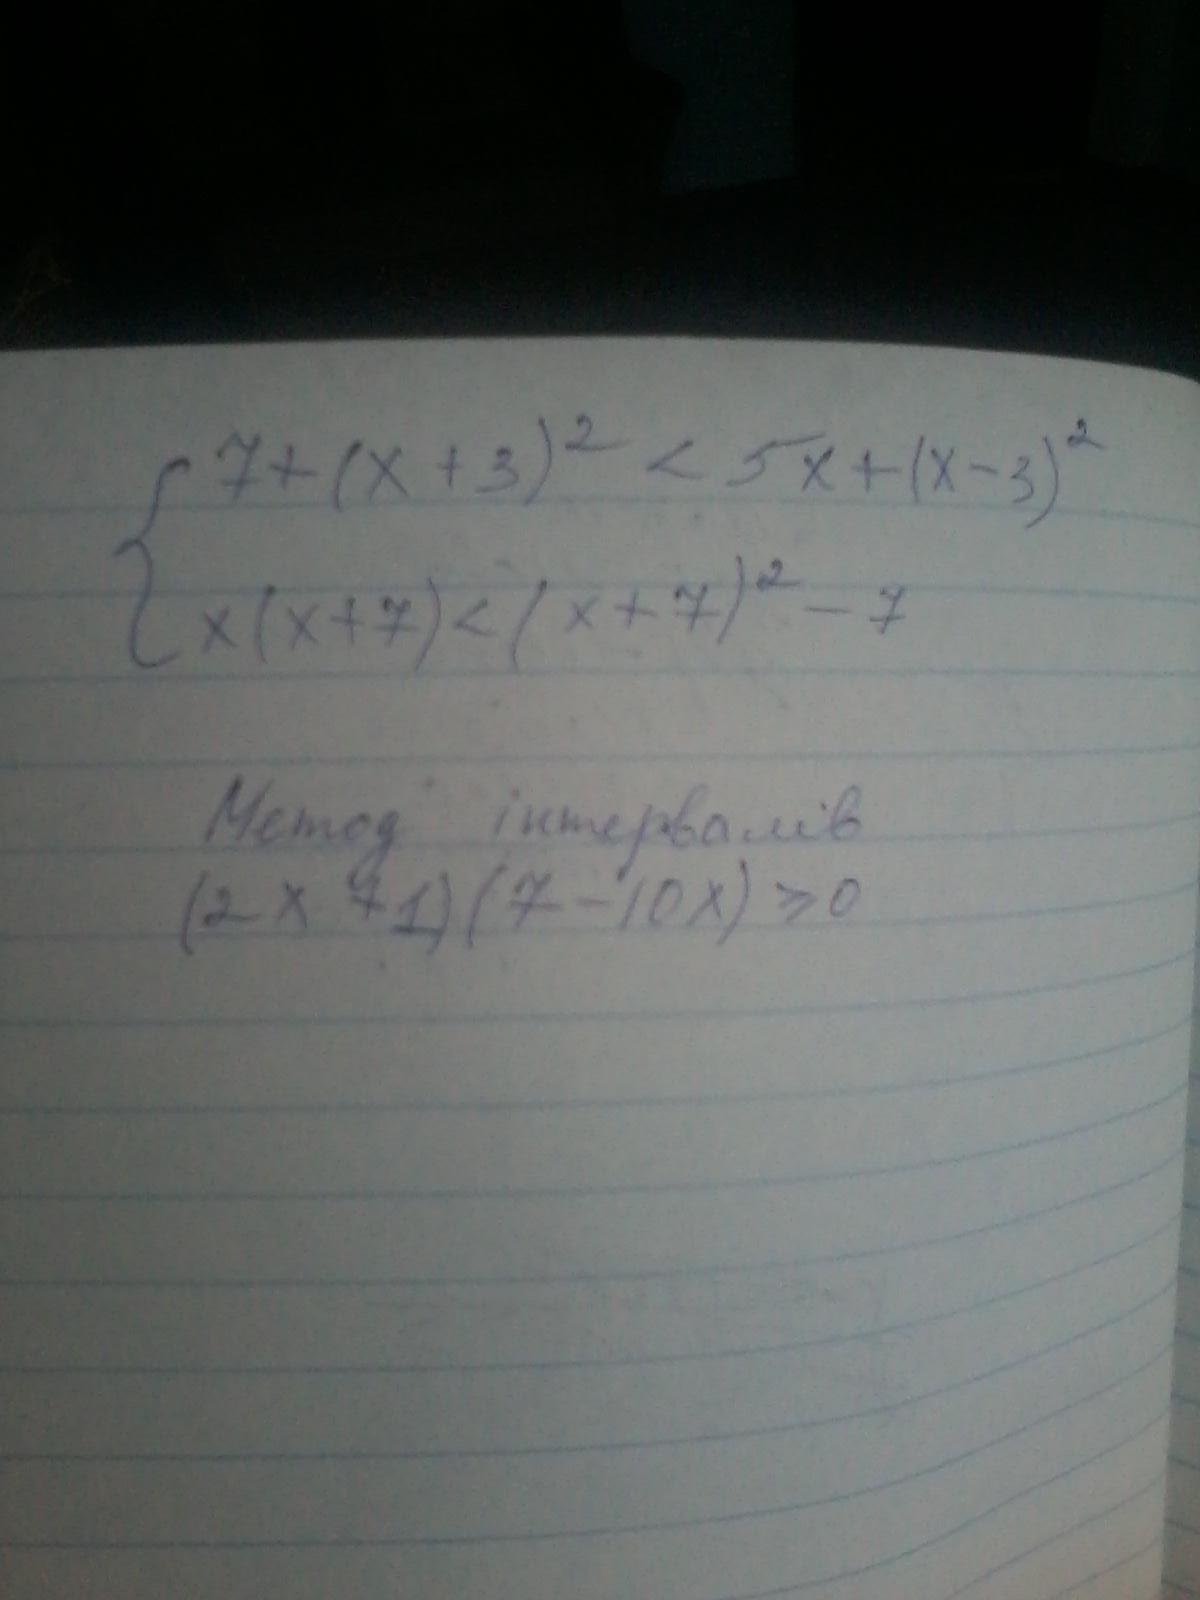 { 7+(x+3)² < 5x+(x-3)²
x(x+7)<(x+7)²-7
Метод інтервалів
(2x+1)(7-10x)≥0